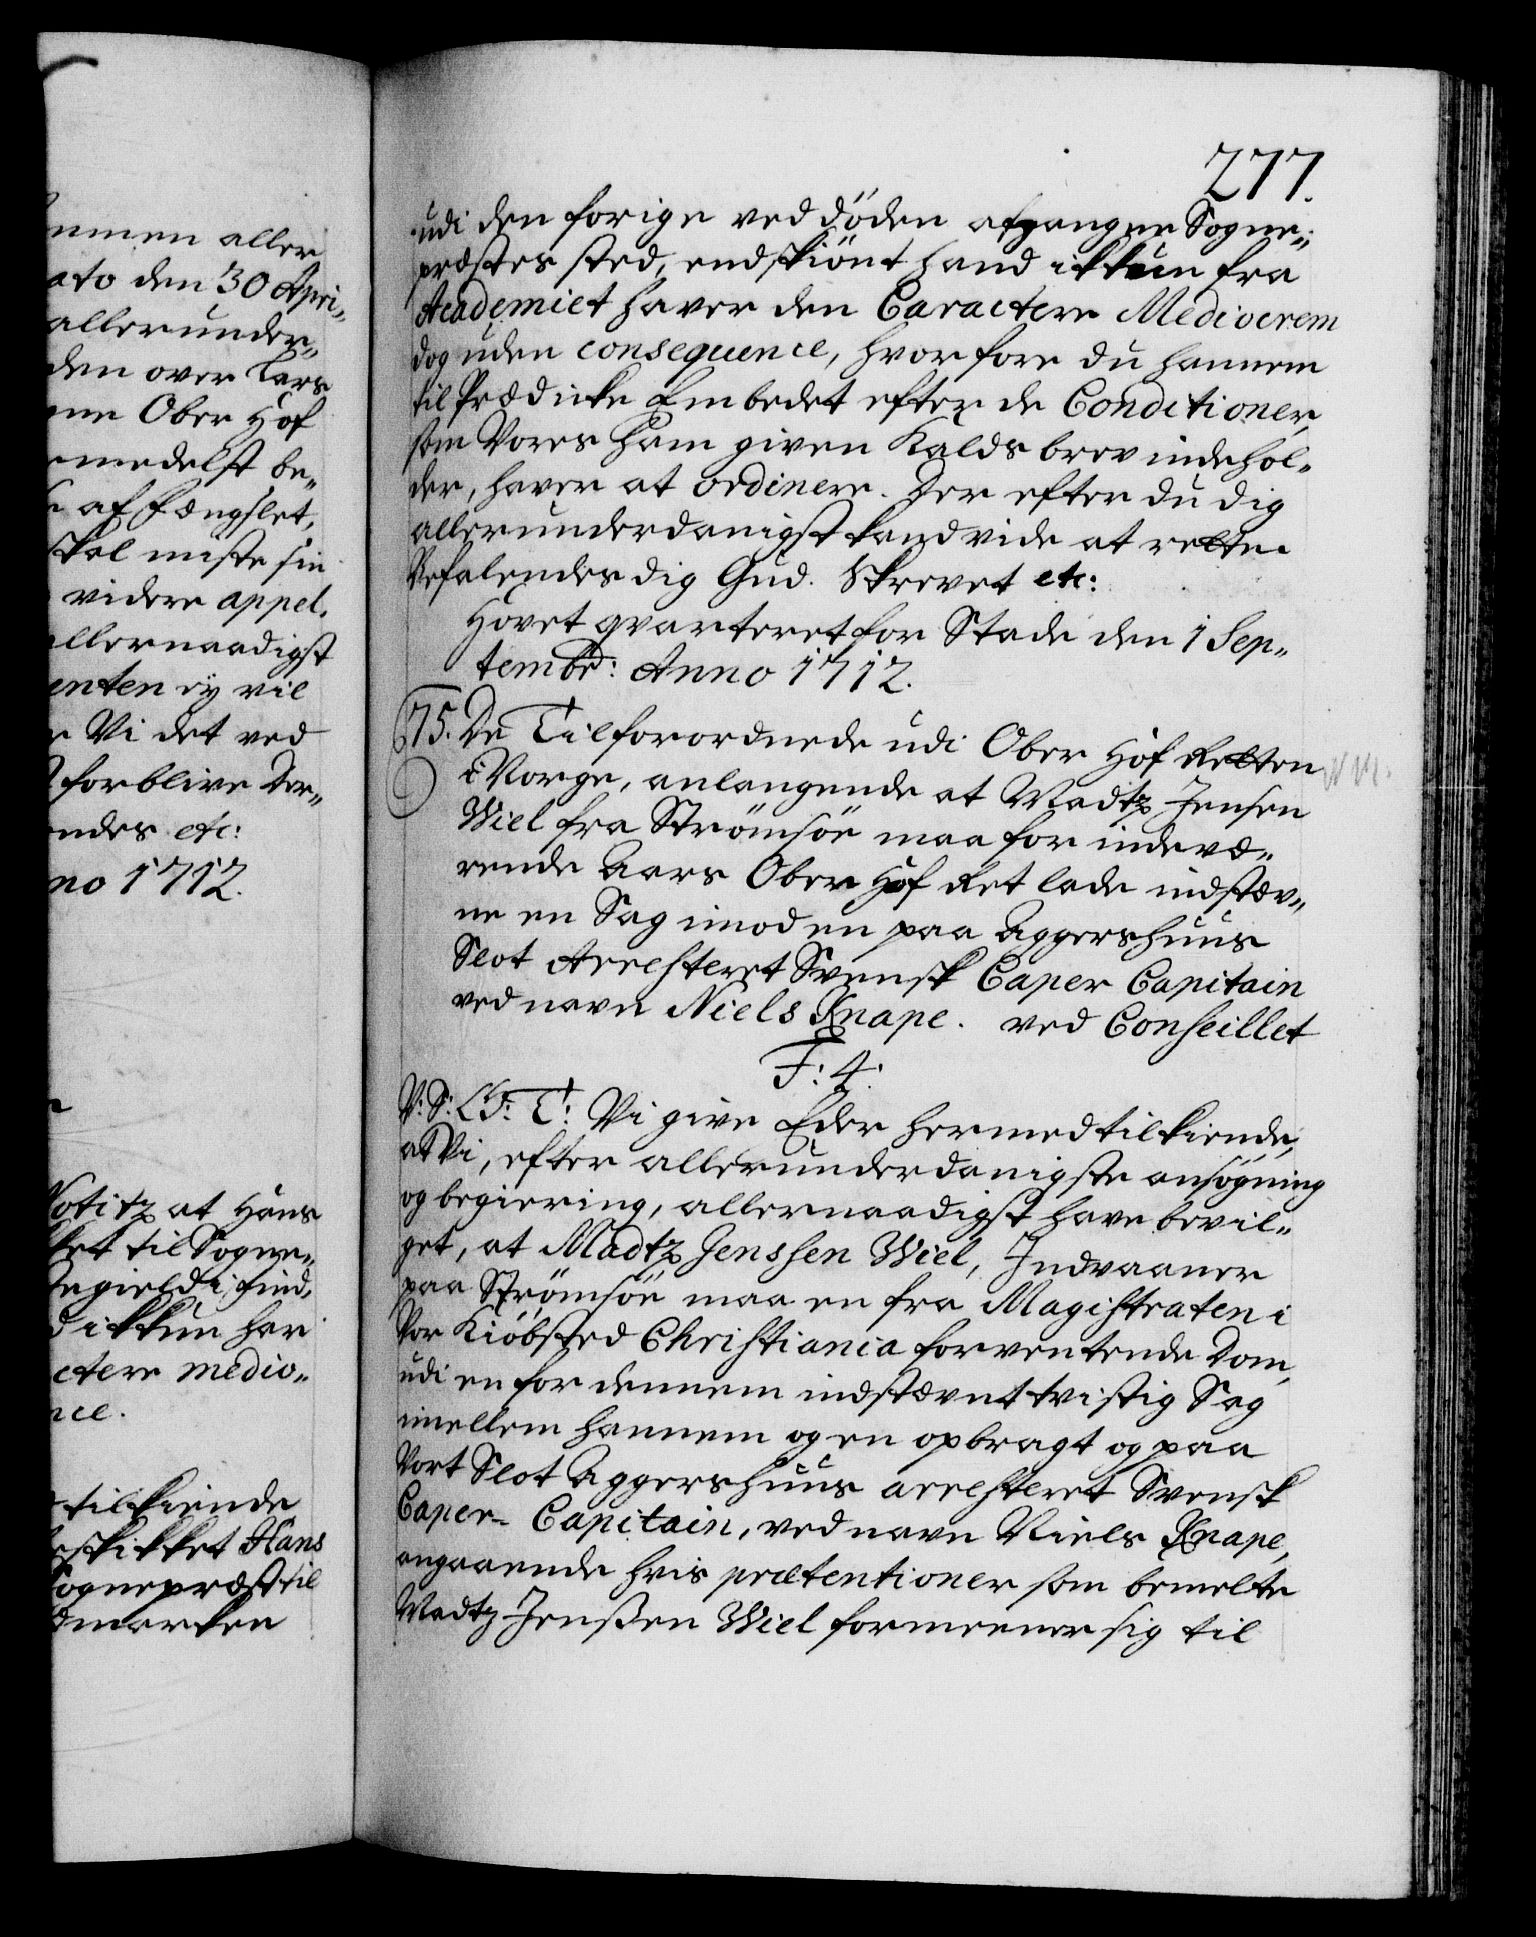 nmen aller
ato den 30 Apri„
allerunder„
den over Lars
gne Ober Hof
rmedelst be„
af Fængslet,
skal miste sin
videre appel.
allernaadigst
enten ey vil
Vi det ved
forblive Der„
endes etc:
no 1712.
Notitz at Hans
ket til Sogne„
egield i Find„
d ikkun har
ctere medio„
nce.
tilkiende
eskikket Hans
Sognepræst til
dmarken
277.
udi den forige ved døden afgangne Sogne„
præstes sted, endskiönt hand ikkun fra
Academiet haver den Caractere Mediocrem
dog uden consequence, hvorfore du hannem
til Prædicke Embedet efter de Conditioner,
som Vores ham given Kalds brev indehol„
der, haver at ordinere. Der efter du dig
allerunderdanigst kand vide at rette.
Befalendes dig Gud. Skrevet etc:
Hovet qvarteret for Stade den 1 Sep„
tembr: Anno 1712.
75. De Tilforordnede udi Ober Hof Retten
i Norge, anlangende at Madtz Jensen
Wiel fra Strömsöe maa for indevæ„
rende Aars Ober Hof Ret lade indstæv„
ne en Sag imod en paa Aggershuus
Slot Arresteret Svensk Caper Capitain
ved navn Niels Knape. ved Conseillet
F: 4.
V: S: G: T: Vi give Eder hermed tilkiende,
at Vi, efter allerunderdanigste ansøgning
og begiering, allernaadigst have bevil„
get, at Madtz Jenssen Wiel, Indvaaner
paa Strömsöe maa en fra Magistraten i
Vor Kiøbsted Christiania forventende Dom,
udi en for dennem indstævnt tvistig Sag
imellem hannem og en opbragt og paa
Vort Slot Aggershuus arresteret Svensk
Caper-Capitain, ved navn Niels Knape,
angaaende hvis prætentioner som bemelte
Madtz Jenssen Wiel formeener sig til